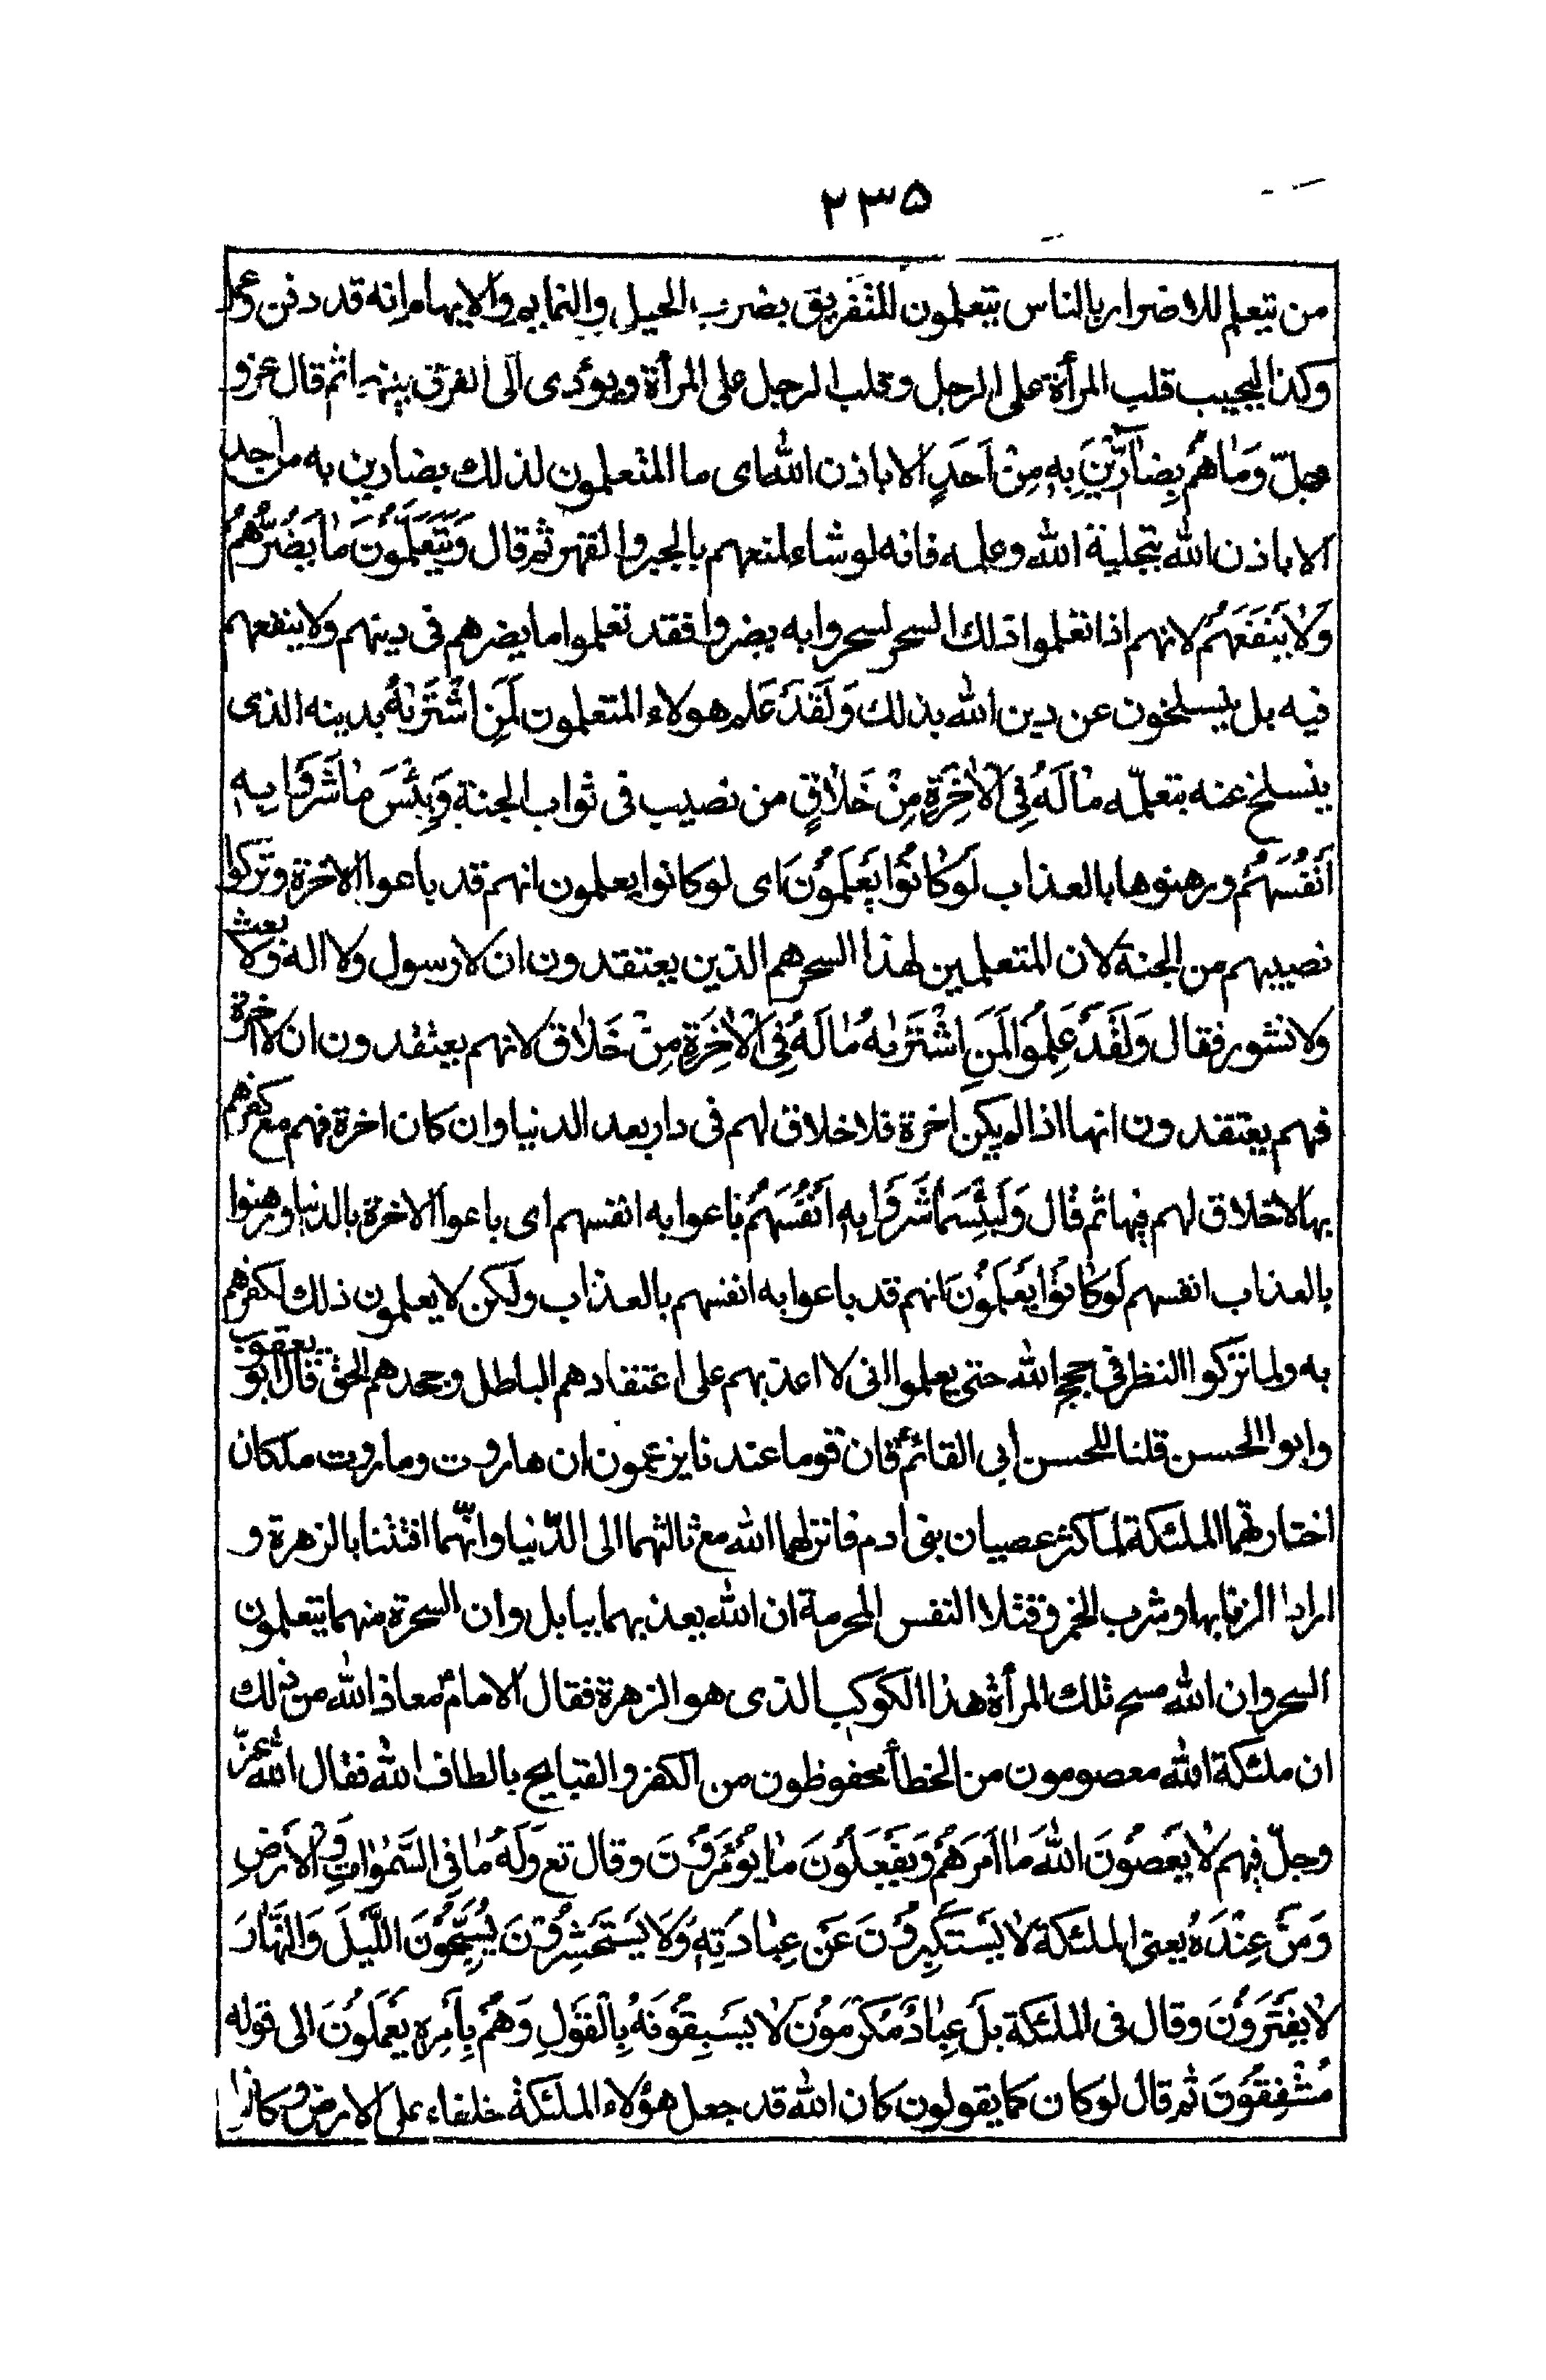 ۲۳۵
من يتعلم للاضرار بالناس يتعلمون للتفريق بضرب الحيل والنمايم والايهام انه قد دفن
وكذا ليجيب قلب المرأة على الرجل وقلب الرجل على المرأة ويؤدى الى الفرق بينهما ثم قال عز و
جلّ وَمٰا هُمْ بِضٰارّٖينَ بِهٖ مِنْ اَحَدٍ الا باذن الله اى ما المتعلمون لذلك بضارين به من احد
الا باذن الله بتخلية الله وعلمه فانه لو شاء لمنعهم بالجبر والقهر ثم قال وَيَتَعَلَّمُونَ مٰا يَضُرُّهُمْ
وَلٰا يَنْفَعُهُمْ لانهم اذا تعلموا ذلك السحر لسحروا به يضروا فقد تعلموا ما يضرهم فى دينهم ولا ينفعهم
فيه بل ينسلخون عن دين الله بذلك وَلَقَدْ عَلِمَ هولاء المتعلمون لَمَنِ اشْتَرٰيهُ بدينه الذى
ينسلخ عنه بتعلّمه مٰا لَهُ فِى الْاٰخِرَةِ مِنْ خَلٰاقٍ من نصيب فى ثواب الجنة وَبِئْسَ مٰا شَرَوْا بِهٖ
اَنْفُسَهُمْ ورهنوها بالعذاب لَوْ كٰانُوا يَعْلَمُونَ اى لو كانوا يعلمون انهم قد باعوا الاخرة وتركوا
نصيبهم من الجنة لان المتعلمين لهذا السحر هم الذين يعتقدون ان لا رسول ولا اله ولا بعث
ولا نشور فقال وَلَقَدْ عَلِمُوا لَمَنِ اشْتَرٰيهُ مٰا لَهُ فِى الْاٰخِرَةِ مِنْ خَلٰاق لانهم يعتقدون ان لا اخرة
فهم يعتقدون انها اذا لم يكن اخرة فلا خلاق لهم فى دار بعد الدنيا وان كان اخرة فهم مع كفرهم
بها لا خلاق لهم فيها ثم قال وَلَبِئْسَمٰا شَرَوْا بِهٖ اَنْفُسَهُمْ باعوا به انفسهم اى باعوا الاخرة بالدنيا ورهنوا
بالعذاب انفسهم لَوْ كٰانُوا يَعْلَمُونَ انهم قد باعوا به انفسهم بالعذاب ولكن لا يعلمون ذلك لكفرهم
به ولما تركوا النظر فى حجج الله حتى يعلموا انى لا اعذبهم على اعتقادهم الباطل وجحدهم الحق قال ابو يعقوب
وابو الحسن قلنا للحسن ابى القائم ع فان قوما عندنا يزعمون ان هاروت وماروت ملكان
اختارتهما الملئكة لما كثر عصيان بنى ادم فانزلهما الله مع ثالثهما الى الدّنيا وانّهما افتتنا بالزهرة و
ارادا الزنا بها وشرب الخمر وقتلا النفس المحرمة ان الله يعذبهما ببابل وان السحرة منهما يتعلمون
السحر وان الله مسخ تلك المرأة هذا الكوكب الذى هو الزهرة فقال الامام ع معاذ الله من ذلك
ان ملئكة الله معصومون من الخطأ محفوظون من الكفر والقبايح بالطاف الله فقال الله عزّ
وجلّ فيهم لٰا يَعْصُونَ اللهَ مٰا اَمَرَهُمْ وَيَفْعَلُونَ مٰا يُؤْمَرُونَ وقال تع وَلَهُ مٰا فِى السَّمٰوٰاتِ وَالْاَرْضِ
وَمَنْ عِنْدَهُ يعنى الملئكة لٰا يَسْتَكْبِرُونَ عَنْ عِبٰادَتِهٖ وَلٰا يَسْتَحْسِرُونَ يُسَبِّحُونَ اللَّيْلَ وَالنَّهٰارَ
لٰا يَفْتُرُونَ وقال فى الملئكة بَلْ عِبٰادٌ مُكْرَمُونَ لٰا يَسْبِقُونَهُ بِالْقَوْلِ وَهُمْ بِاَمْرِهٖ يَعْمَلُونَ الى قوله
مُشْفِقُونَ ثم قال لو كان كما يقولون كان الله قد جعل هؤلاء الملئكة خلفاء على الارض وكانوا